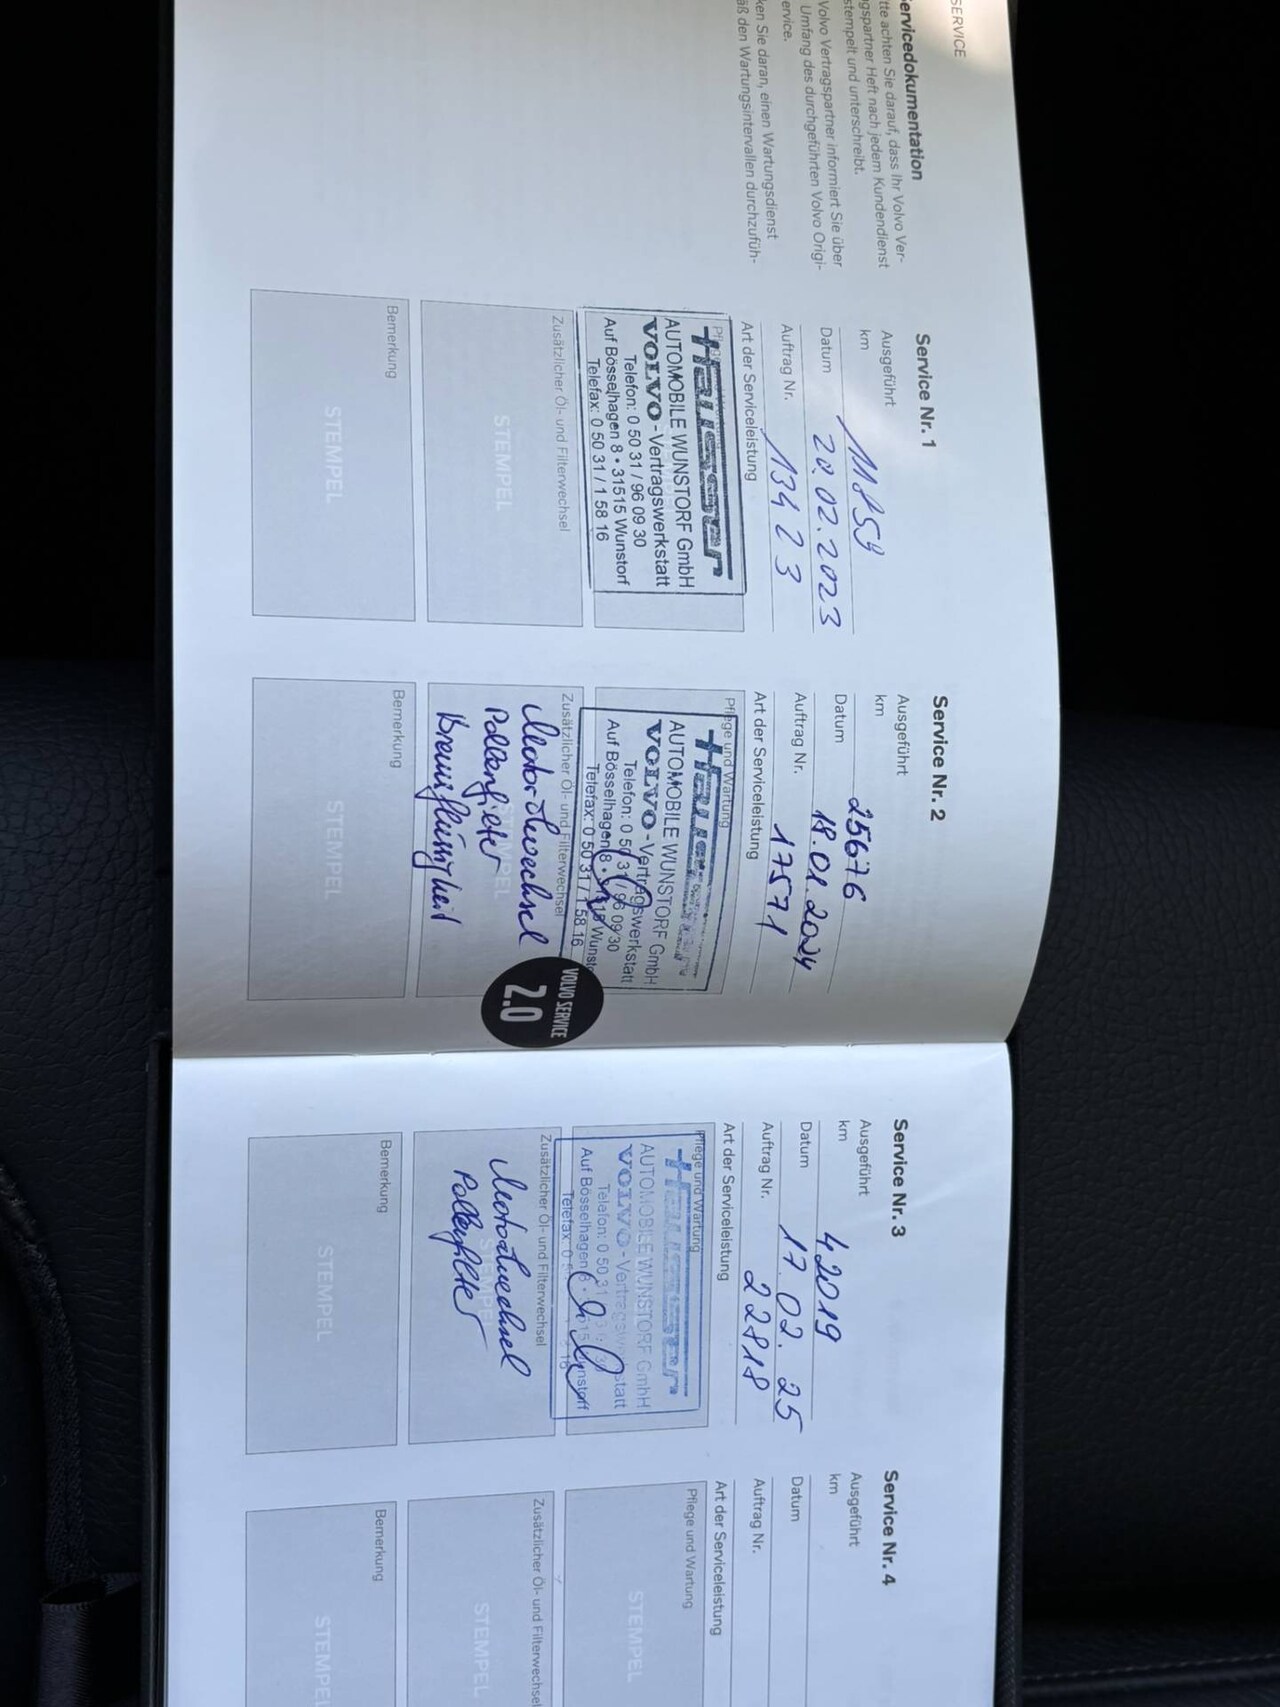 SERVICE
ervicedokumentation
tte achten Sie darauf, dass Ihr Volvo Ver-
gspartner Heft nach jedem Kundendienst
stempelt und unterschreibt.
Volvo Vertragspartner informiert Sie über
Umfang des durchgeführten Volvo Origi-
ervice.
ken Sie daran, einen Wartungsdienst
äß den Wartungsintervallen durchzufüh-
Service Nr. 1
Ausgeführt
km 11859
Datum 20.02.2023
Auftrag Nr. 13423
Art der Serviceleistung
Hausner
AUTOMOBILE WUNSTORF GmbH
VOLVO - Vertragswerkstatt
Telefon: 0 50 31 / 96 09 30
Auf Bösselhagen 8 • 31515 Wunstorf
Telefax: 0 50 31 / 1 58 16
Zusätzlicher Öl- und Filterwechsel
STEMPEL
Bemerkung
STEMPEL
Service Nr. 2
Ausgeführt
km 25676
Datum 18.01.2024
Auftrag Nr. 17571
Art der Serviceleistung
Pflege und Wartung
AUTOMOBILE WUNSTORF GmbH
VOLVO - Vertragswerkstatt
Telefon: 0 50 31 / 96 09 30
Auf Bösselhagen 8
Telefax: 0 50 31 / 1 58 16
Zusätzlicher Öl- und Filterwechsel
Motorölwechsel
Pollenfilter
STEMPEL
Bremsflüssigkeit
VOLVO SERVICE
2.0
Bemerkung
STEMPEL
Service Nr. 3
Ausgeführt
km 42019
Datum 17.02.25
Auftrag Nr. 22818
Art der Serviceleistung
Pflege und Wartung
AUTOMOBILE WUNSTORF GmbH
VOLVO - Vertragswerkstatt
Telefon: 0 50 31
Auf Bösselhagen 8
Telefax: 0
Zusätzlicher Öl- und Filterwechsel
Motorölwechsel
STEMPEL
Pollenfilter
Bemerkung
STEMPEL
Service Nr. 4
Ausgeführt
km
Datum
Auftrag Nr.
Art der Serviceleistung
Pflege und Wartung
STEMPEL
Zusätzlicher Öl- und Filterwechsel
STEMPEL
Bemerkung
STEMPEL